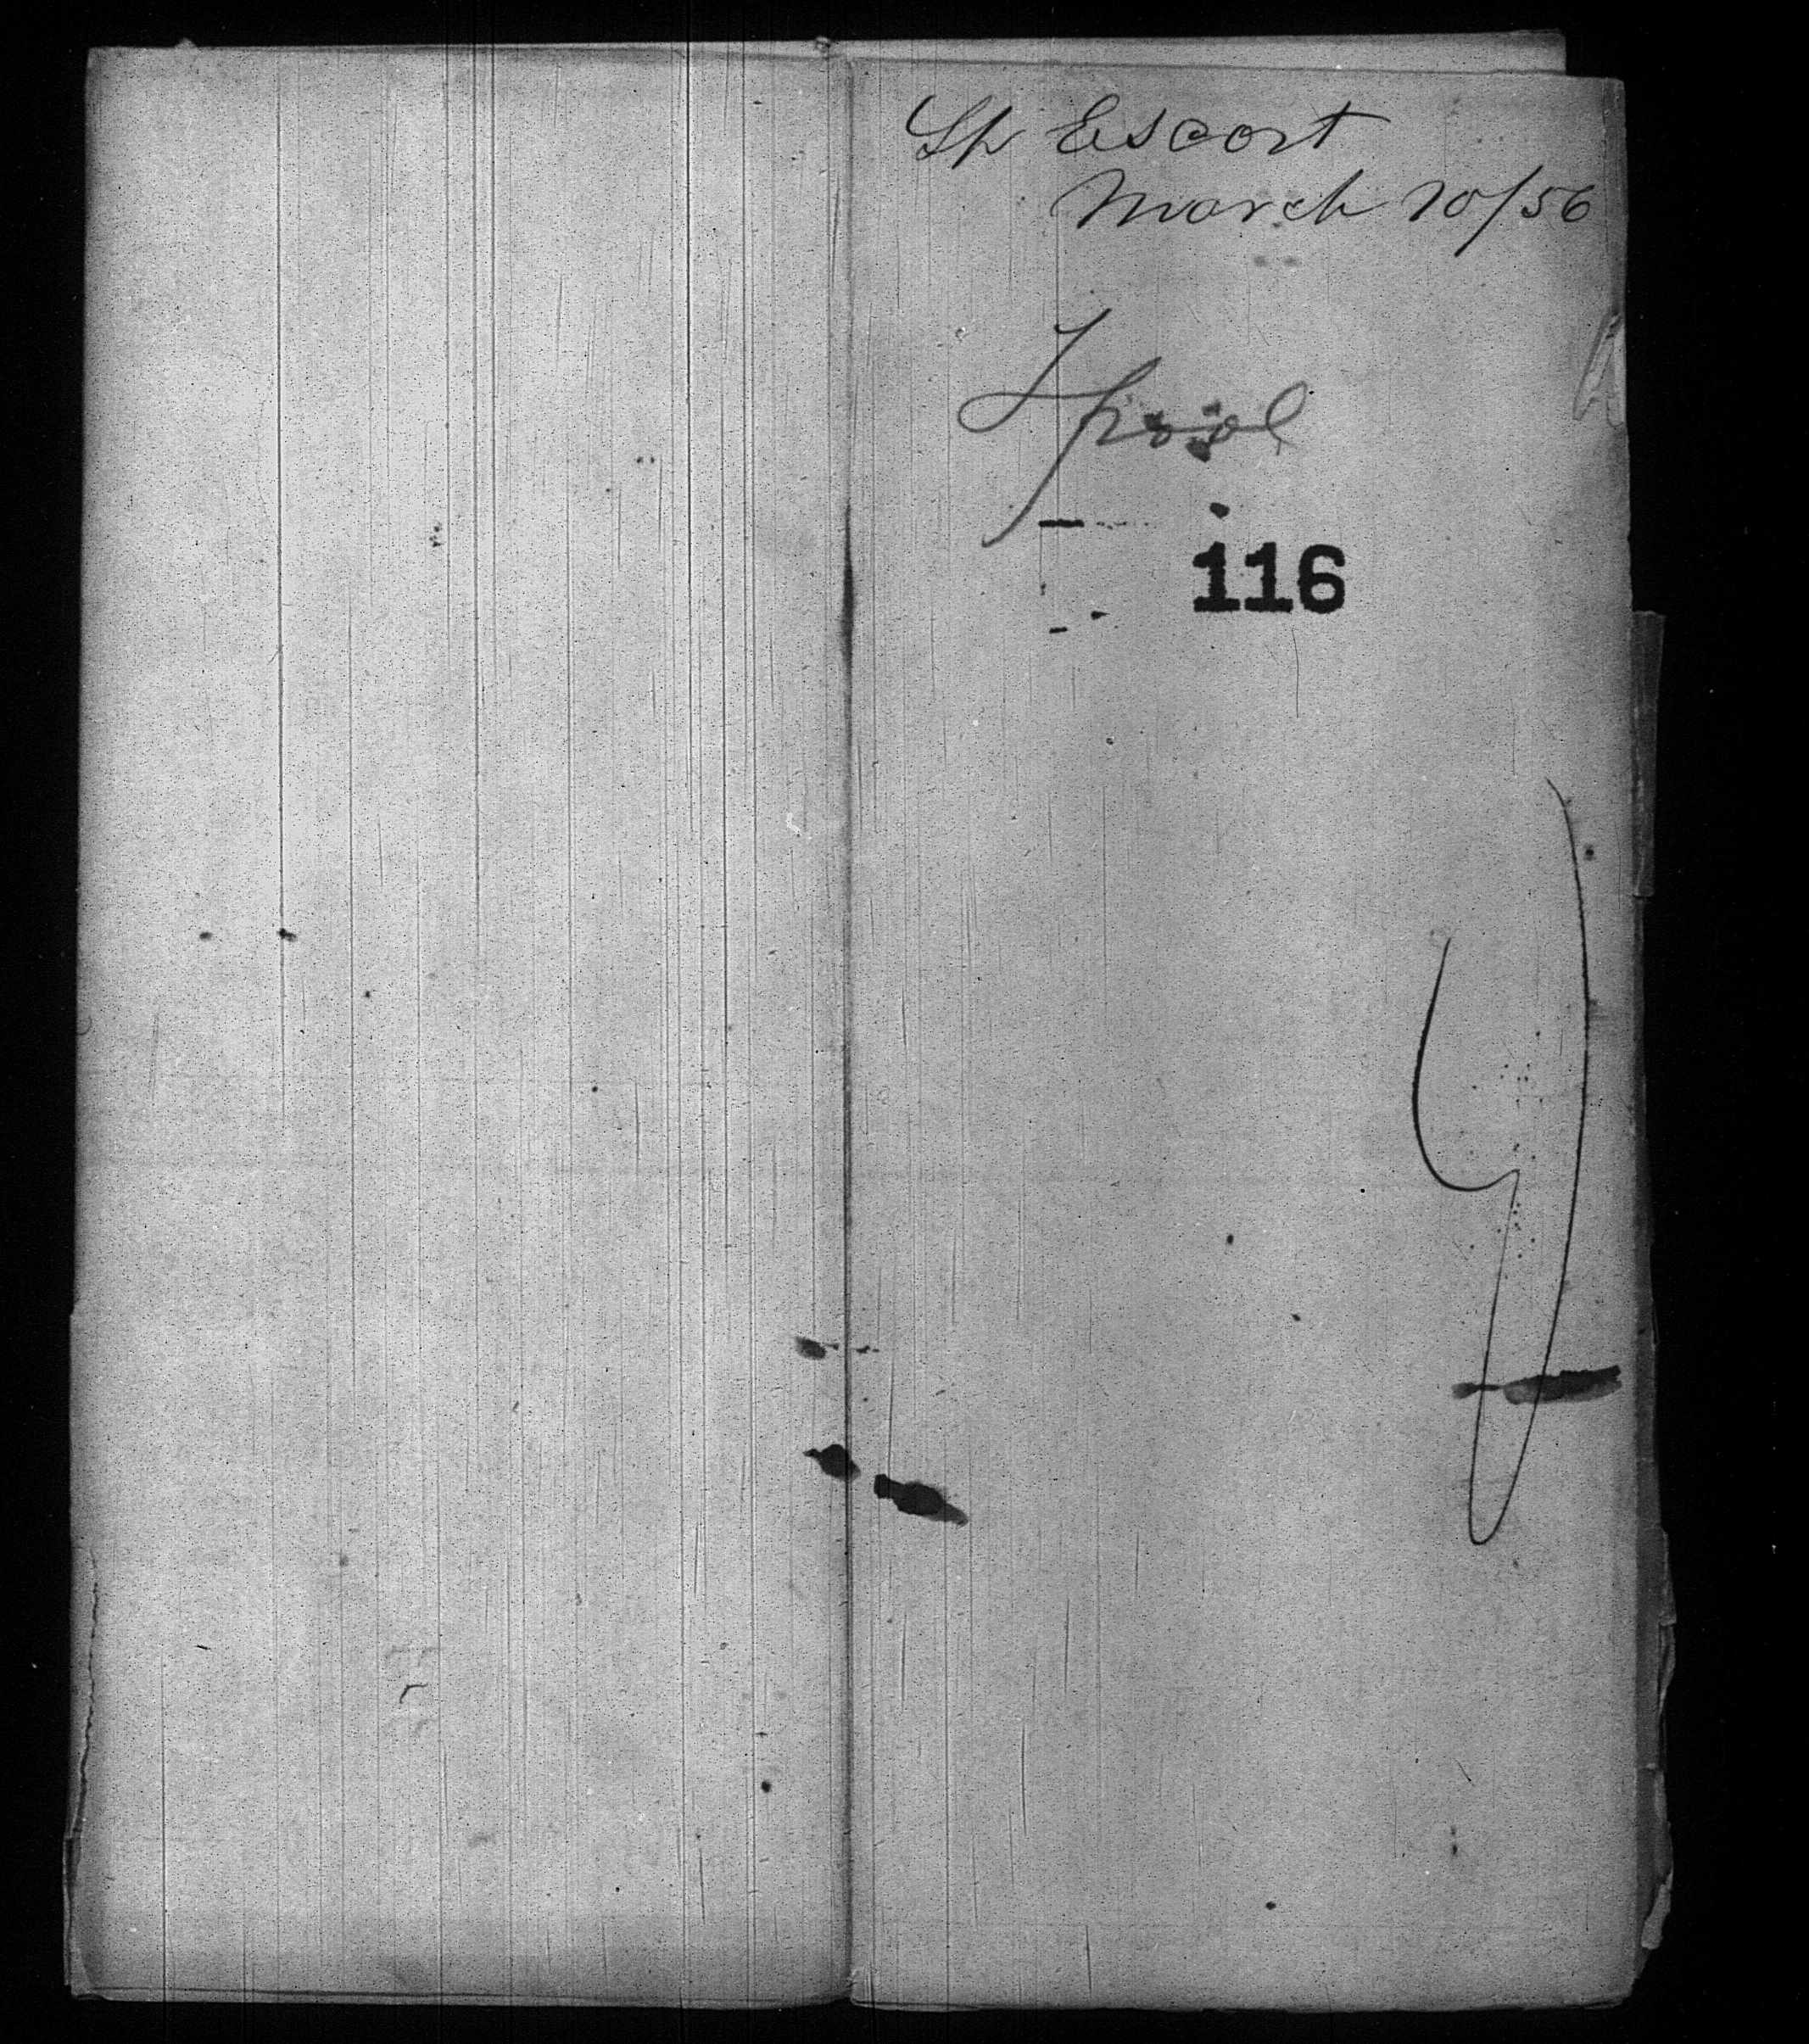 Sh Escort
March 10/56
L'pool
116